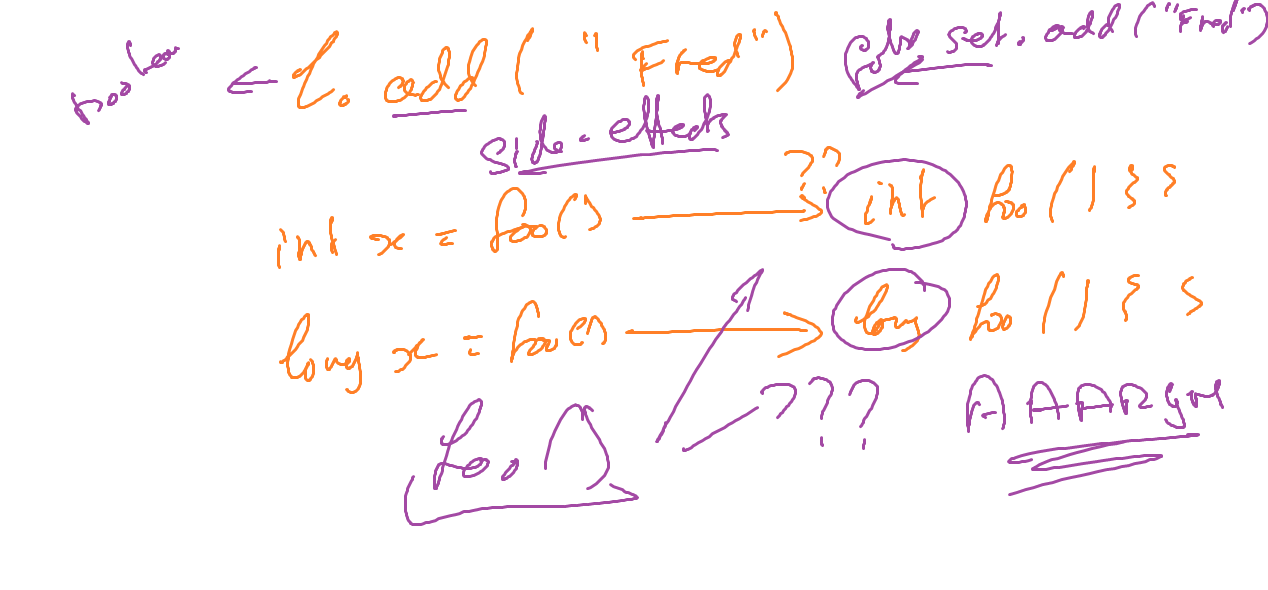 boolean ← l. add ( " Fred" ) set. add ("Fred")
side-effects
??
int x = foo() → int foo () { }
long x = foo() → long foo () { }
foo() ??? AAARGH